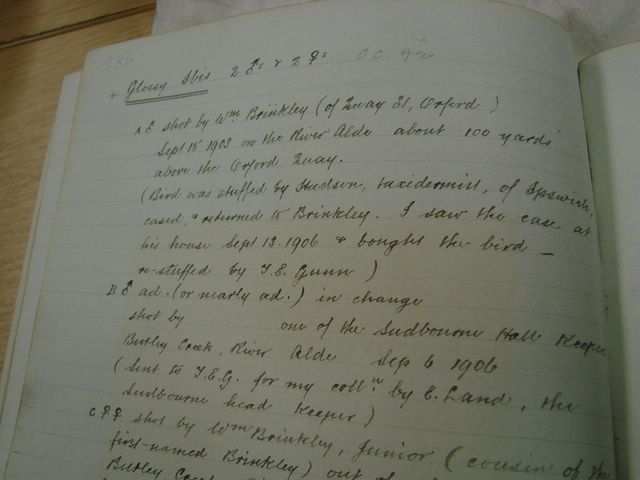 286
+ Glossy Ibis 2 ♂s & 2 ♀s O.C.
A ♂ shot by Wm Brinkley (of Quay St, Orford)
Sept 15 1903 on the River Alde about 100 yards
above the Orford Quay.
(Bird was stuffed by Hudson, taxidermist, of Ipswich,
cased, & returned to Brinkley. I saw the case at
his house Sept 13. 1906 & bought the bird —
re-stuffed by T.E. Gunn)
B ♂ ad. (or nearly ad.) in change
shot by one of the Sudbourne Hall Keepers
Butley Creek, River Alde Sep 6 1906
(Sent to T.E.G. for my colln. by E. Land, the
Sudbourne head Keeper)
C ♀♀ shot by Wm Brinkley, Junior (cousin of the
first-named Brinkley) out of
Butley Creek